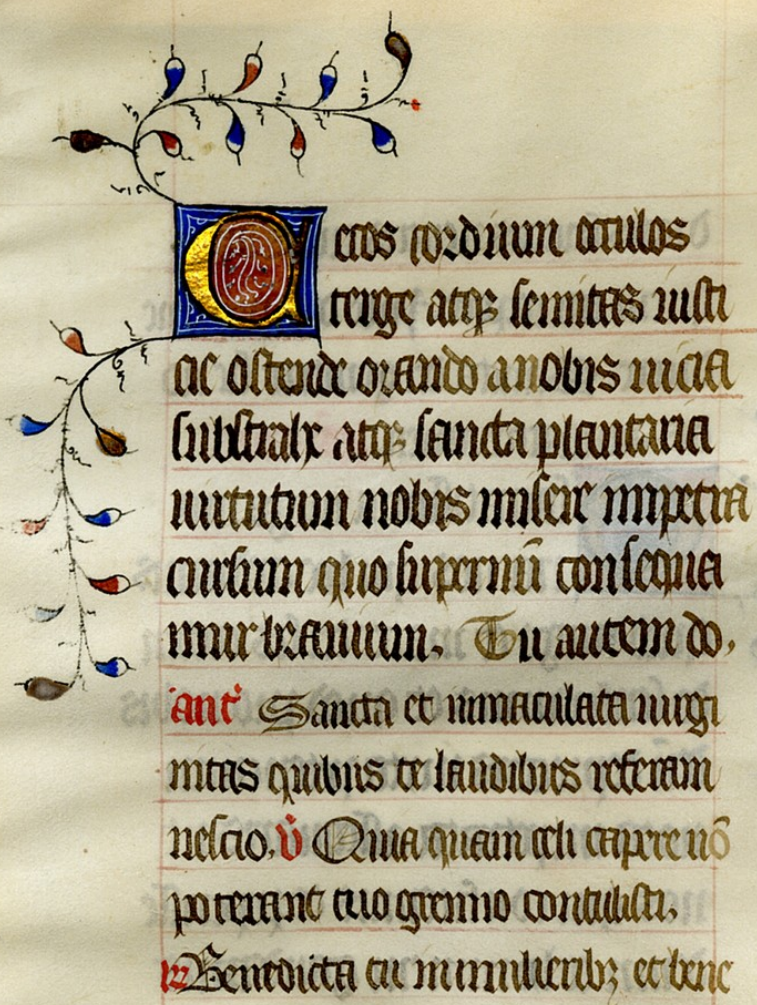 Cecos cordium oculos
terge atqꝫ semitas iusti
cie ostende orando a nobis uicia
substrahe atqꝫ sancta plantaria
uirtutum nobis misere impetra
cursum quo supernū consequa
mur brauium. Tu autem do.
ant̾ Sancta et inmaculata uirgi
nitas quibus te laudibus referam
nescio. v̾ Quia quem celi capere nō
poterant tuo gremio contulisti.
Benedicta tu in mulieribꝫ et bene